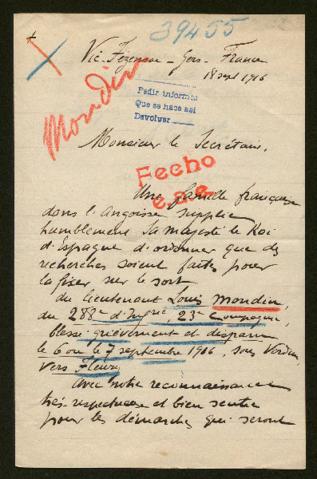 39455
Vic-Fezensac - Gers - France
18 sept 1916
Mondin
Pedir informes
Que se hace así
Devolver
Monsieur le Secrétaire,
Fecho
Une famille française
dans l'angoisse supplie
humblement Sa majesté le Roi
d'Espagne d'ordonner que des
recherches soient faites pour
la fixer sur le sort
du lieutenant Louis Mondin
du 288e d'Infrie 23e Compagnie,
blessé grièvement et disparu
le 6 ou le 7 septembre 1916, sous Verdun,
vers Fleury.
Avec notre reconnaissance
très respectueuse et bien sentie
pour les démarches qui seront